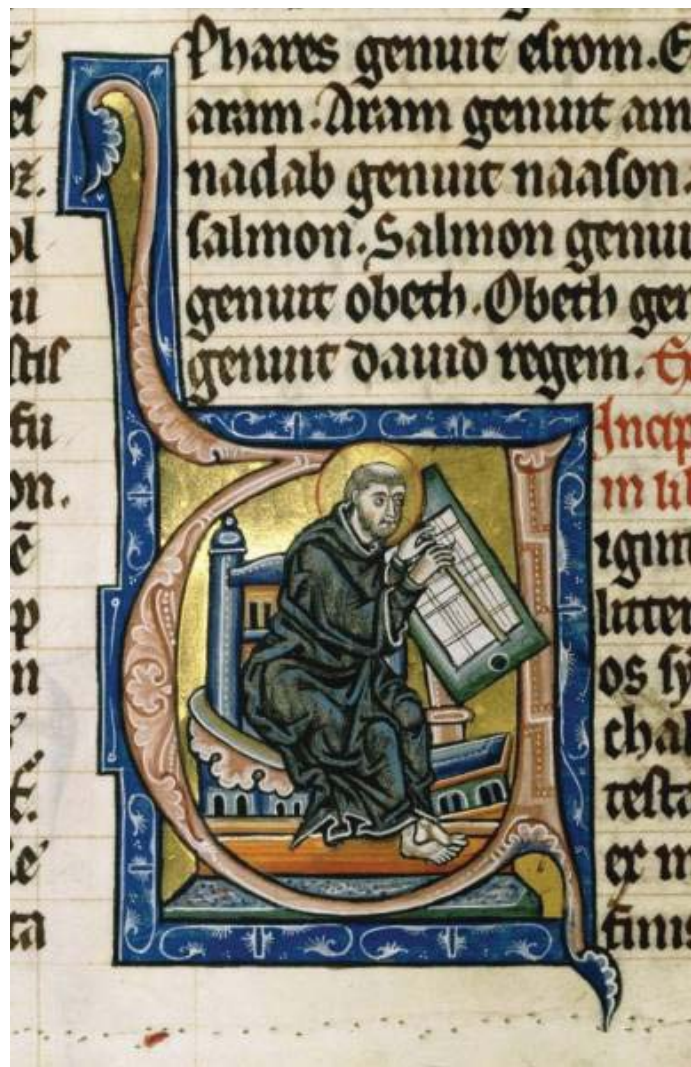 es
z.
ol
u
stis
fu
on.
ē
p
n
ta
Phares genuit esrom. E
aram. Aram genuit am
nadab genuit naason.
salmon. Salmon genui
genuit obeth. Obeth gen
genuit dauid regem.
Incip
in li
igin
litter
os sy
chal
testa
er m
finis